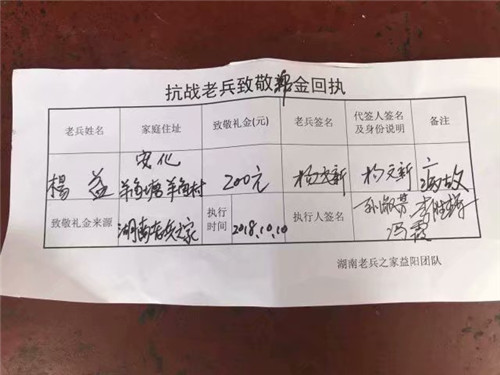 抗战老兵致敬帛金回执
老兵姓名 家庭住址 致敬礼金(元) 老兵签名 代签人签名及身份说明 备注
楊益 安化羊角塘羊角村 200元 杨文新 杨文新 病故
致敬礼金来源 湖南老兵之家 执行时间 2018.10.10 执行人签名 孙淑芳 李胜 冯霞
湖南老兵之家益阳团队